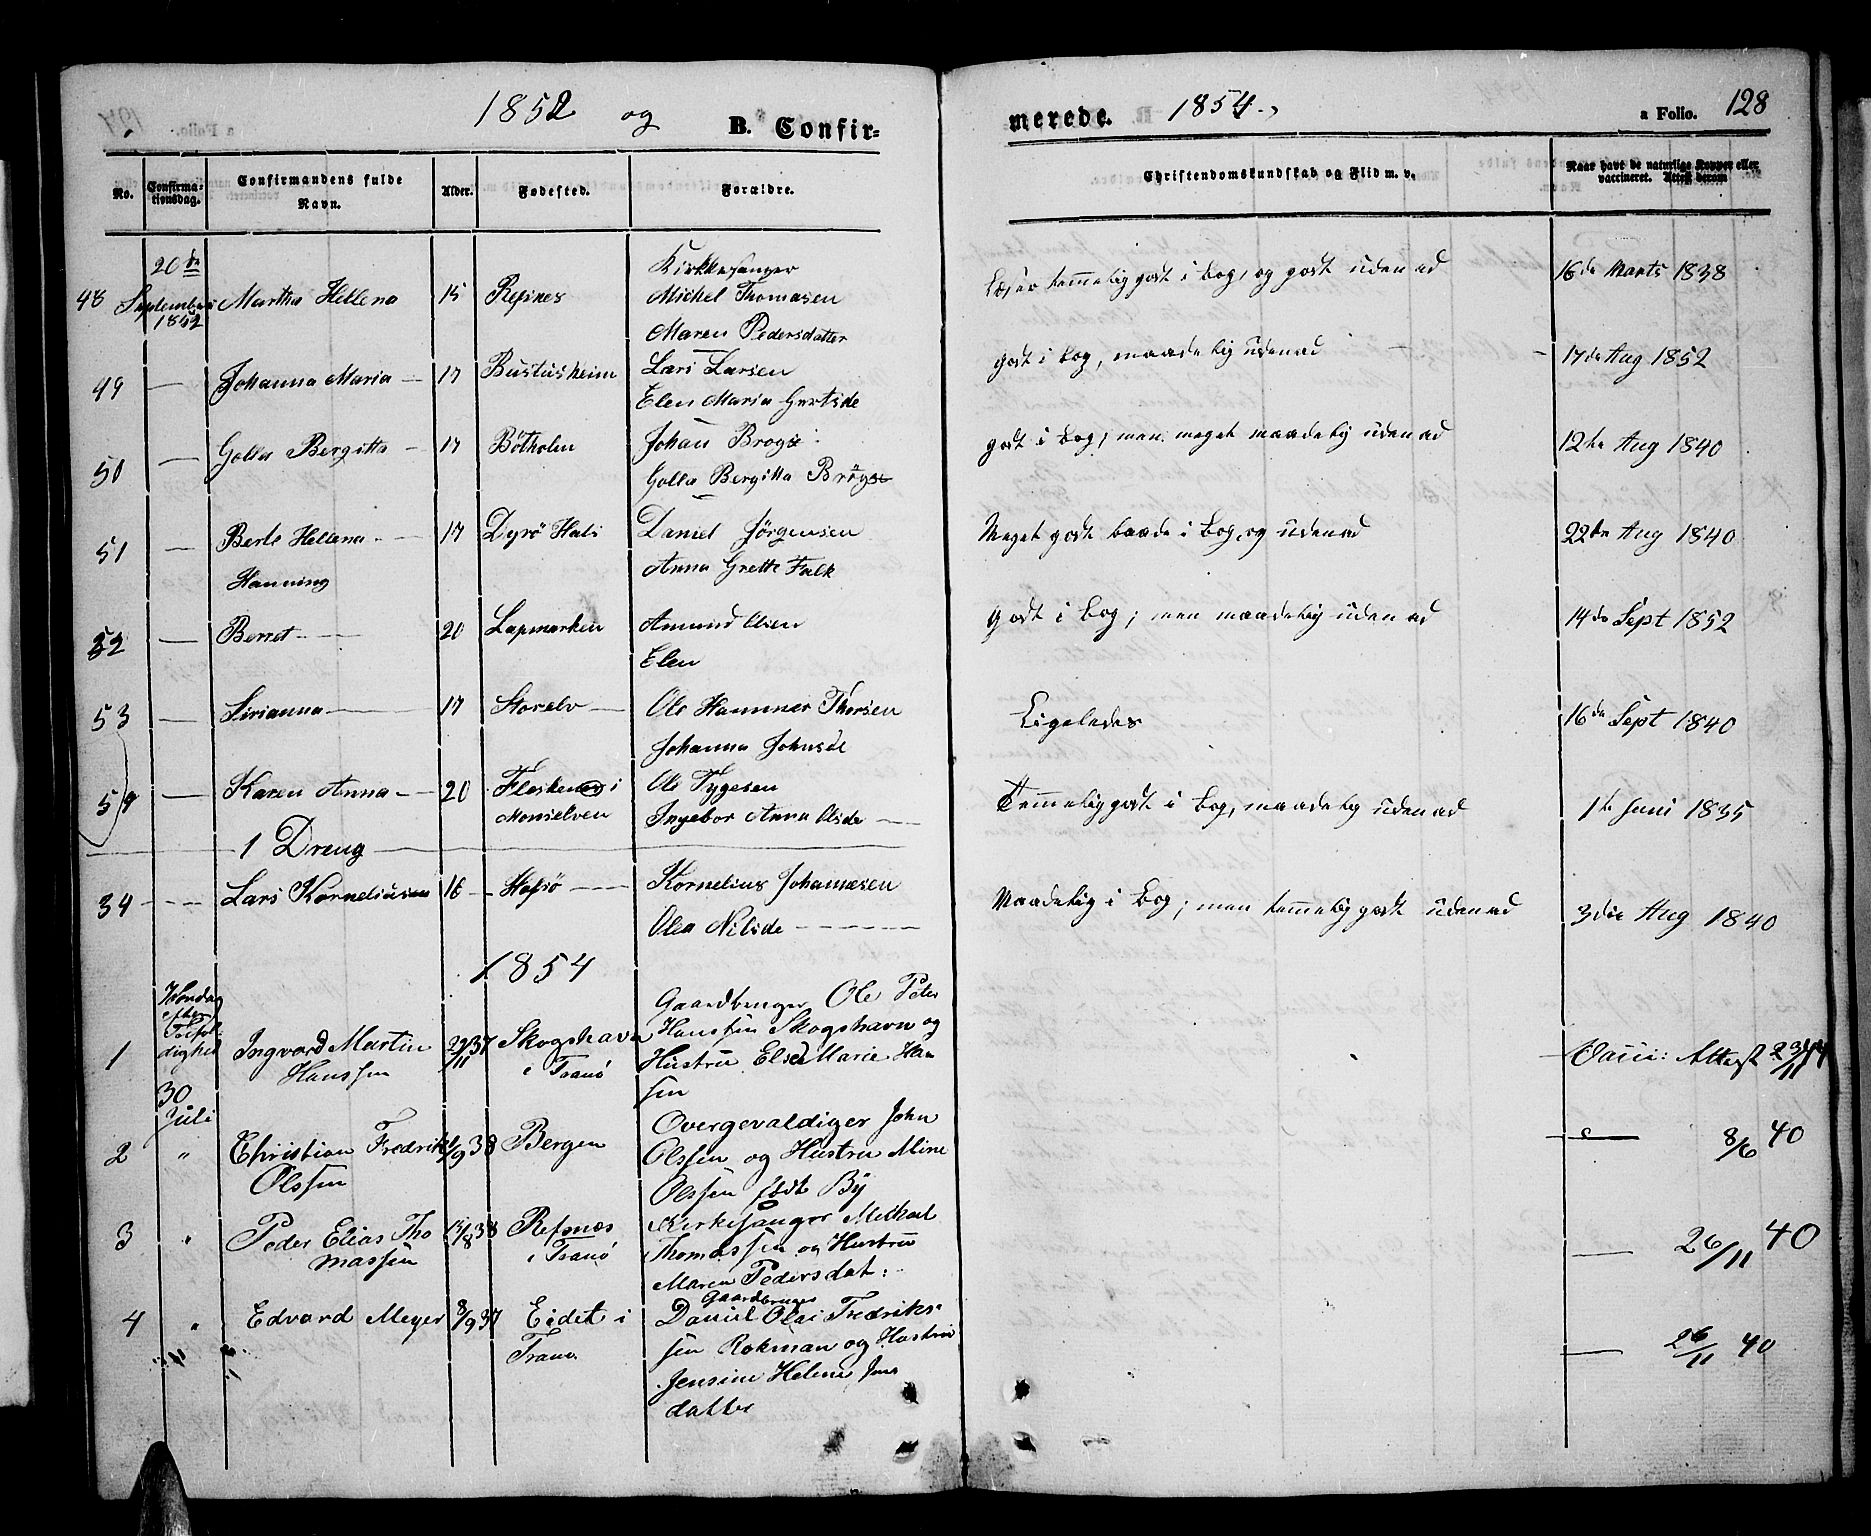 1852 og B. Confir=
merede. 1854.
a Folio. 128
No. Confirmationsdag. Confirmandens fulde Navn. Alder. Fødested. Forældre. Christendomskundskab og Flid m. v. Naar havt de naturlige Kopper eller vaccineret. Attest derom
20de Kirkesanger
48 September Martha Hellena 15 Refsnes Michel Thomasen Læser temmelig godt i Bog, og godt udenad 16de Marts 1838
1852 Maren Pedersdatter
49 — Johanna Maria — 17 Bustusheim Lars Larsen godt i Bog, maadelig udenad — 17de Aug 1852
Elen Maria Gertsde
50 — Golla Bergitta — 17 Bøtholm Johan Brogs godt i Bog, men meget maadelig udenad 12te Aug 1840
Golla Bergitta
51 — Berle Hellena — 17 Dyrø Hals Daniel Jørgensen Meget godt baade i Bog, og udenad 22de Aug 1840
Hanning Anna Grette Falk
52 — Berret — 20 Lapmarken Amund Olsen godt i Bog; men maadelig udenad 14de Sept 1852
Elen
53 — Sirianna — 17 Storelv — Ole Hammer Thorsen Ligeledes 16de Sept 1840
Johanna Johnsde
54 — Karen Anna — 20 i Ole Tygesen Temmelig godt i Bog, maadelig udenad 1te Juni 1835
Monselven Ingebor Anna Olsde —
1 Dreng
34 — Lars Korneliusen 16 — Hofsø — Kornelius Johannesen Maadelig i Bog; men temmelig godt udenad 3die Aug 1840
Olea Nilsde —
1854
Gaardbruger Ole Peter
1 Ingvard Martin 22/11 37 Skogshavn Hanssen Skogshavn og — Vacci: Attest 23/11
Hanssen i Tranø Hustru Elsa Marie Han
30 sen
Juli Overgevaldiger John
2 " Christian Fredrik 1/9 38 Bergen Olssen og Hustru Mine — 8/6 40
Olssen Olssen født By
3 " Peder Elias Tho 12/8 38 Refsnæs Kirkesanger Methal — 26/11 40
massen i Tranø Thomassen og Hustru
Maren Pedersdat:
Gaardbruger
4 " Edvard Meyer 8/9 37 Eidet i Daniel Olai Fredriks
Tranø sen Rokman og Hustru — 26/11 40
Jensine Helene Jens
datter